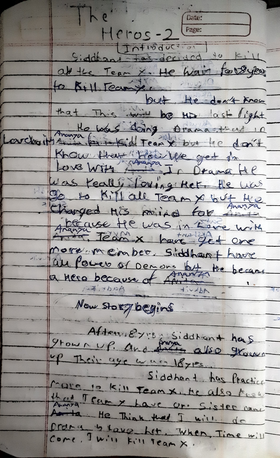 The
Heros-2
Date:
Page:
[Introduction]
Siddhant has decided to kill
all the Team X. He wait for 8 years
to Kill Team X.
but He don't know
that This will be His last fight
He was doing Drama that in
Lovebait Ananya Kill Team X but He don't
Know that How He get in
Love With Ananya In Drama He
was really loving Her. He was
go to Kill all Team X but He
changed His mind for Ananya
because He was in Love with
Ananya. Team X have get one
more member. Siddhant have
all power of Demons but He became
a Hero because of Ananya
Now Story begins
After 8 yrs. Siddhant has
grown up. And Ananya also grown
up Their age were 18 yrs.
Siddhant has Practice
more to Kill Team X. He also
that Team X have on Sister name
He Think that I will do
drama to love Her. When Time will
come. I will Kill Team X.